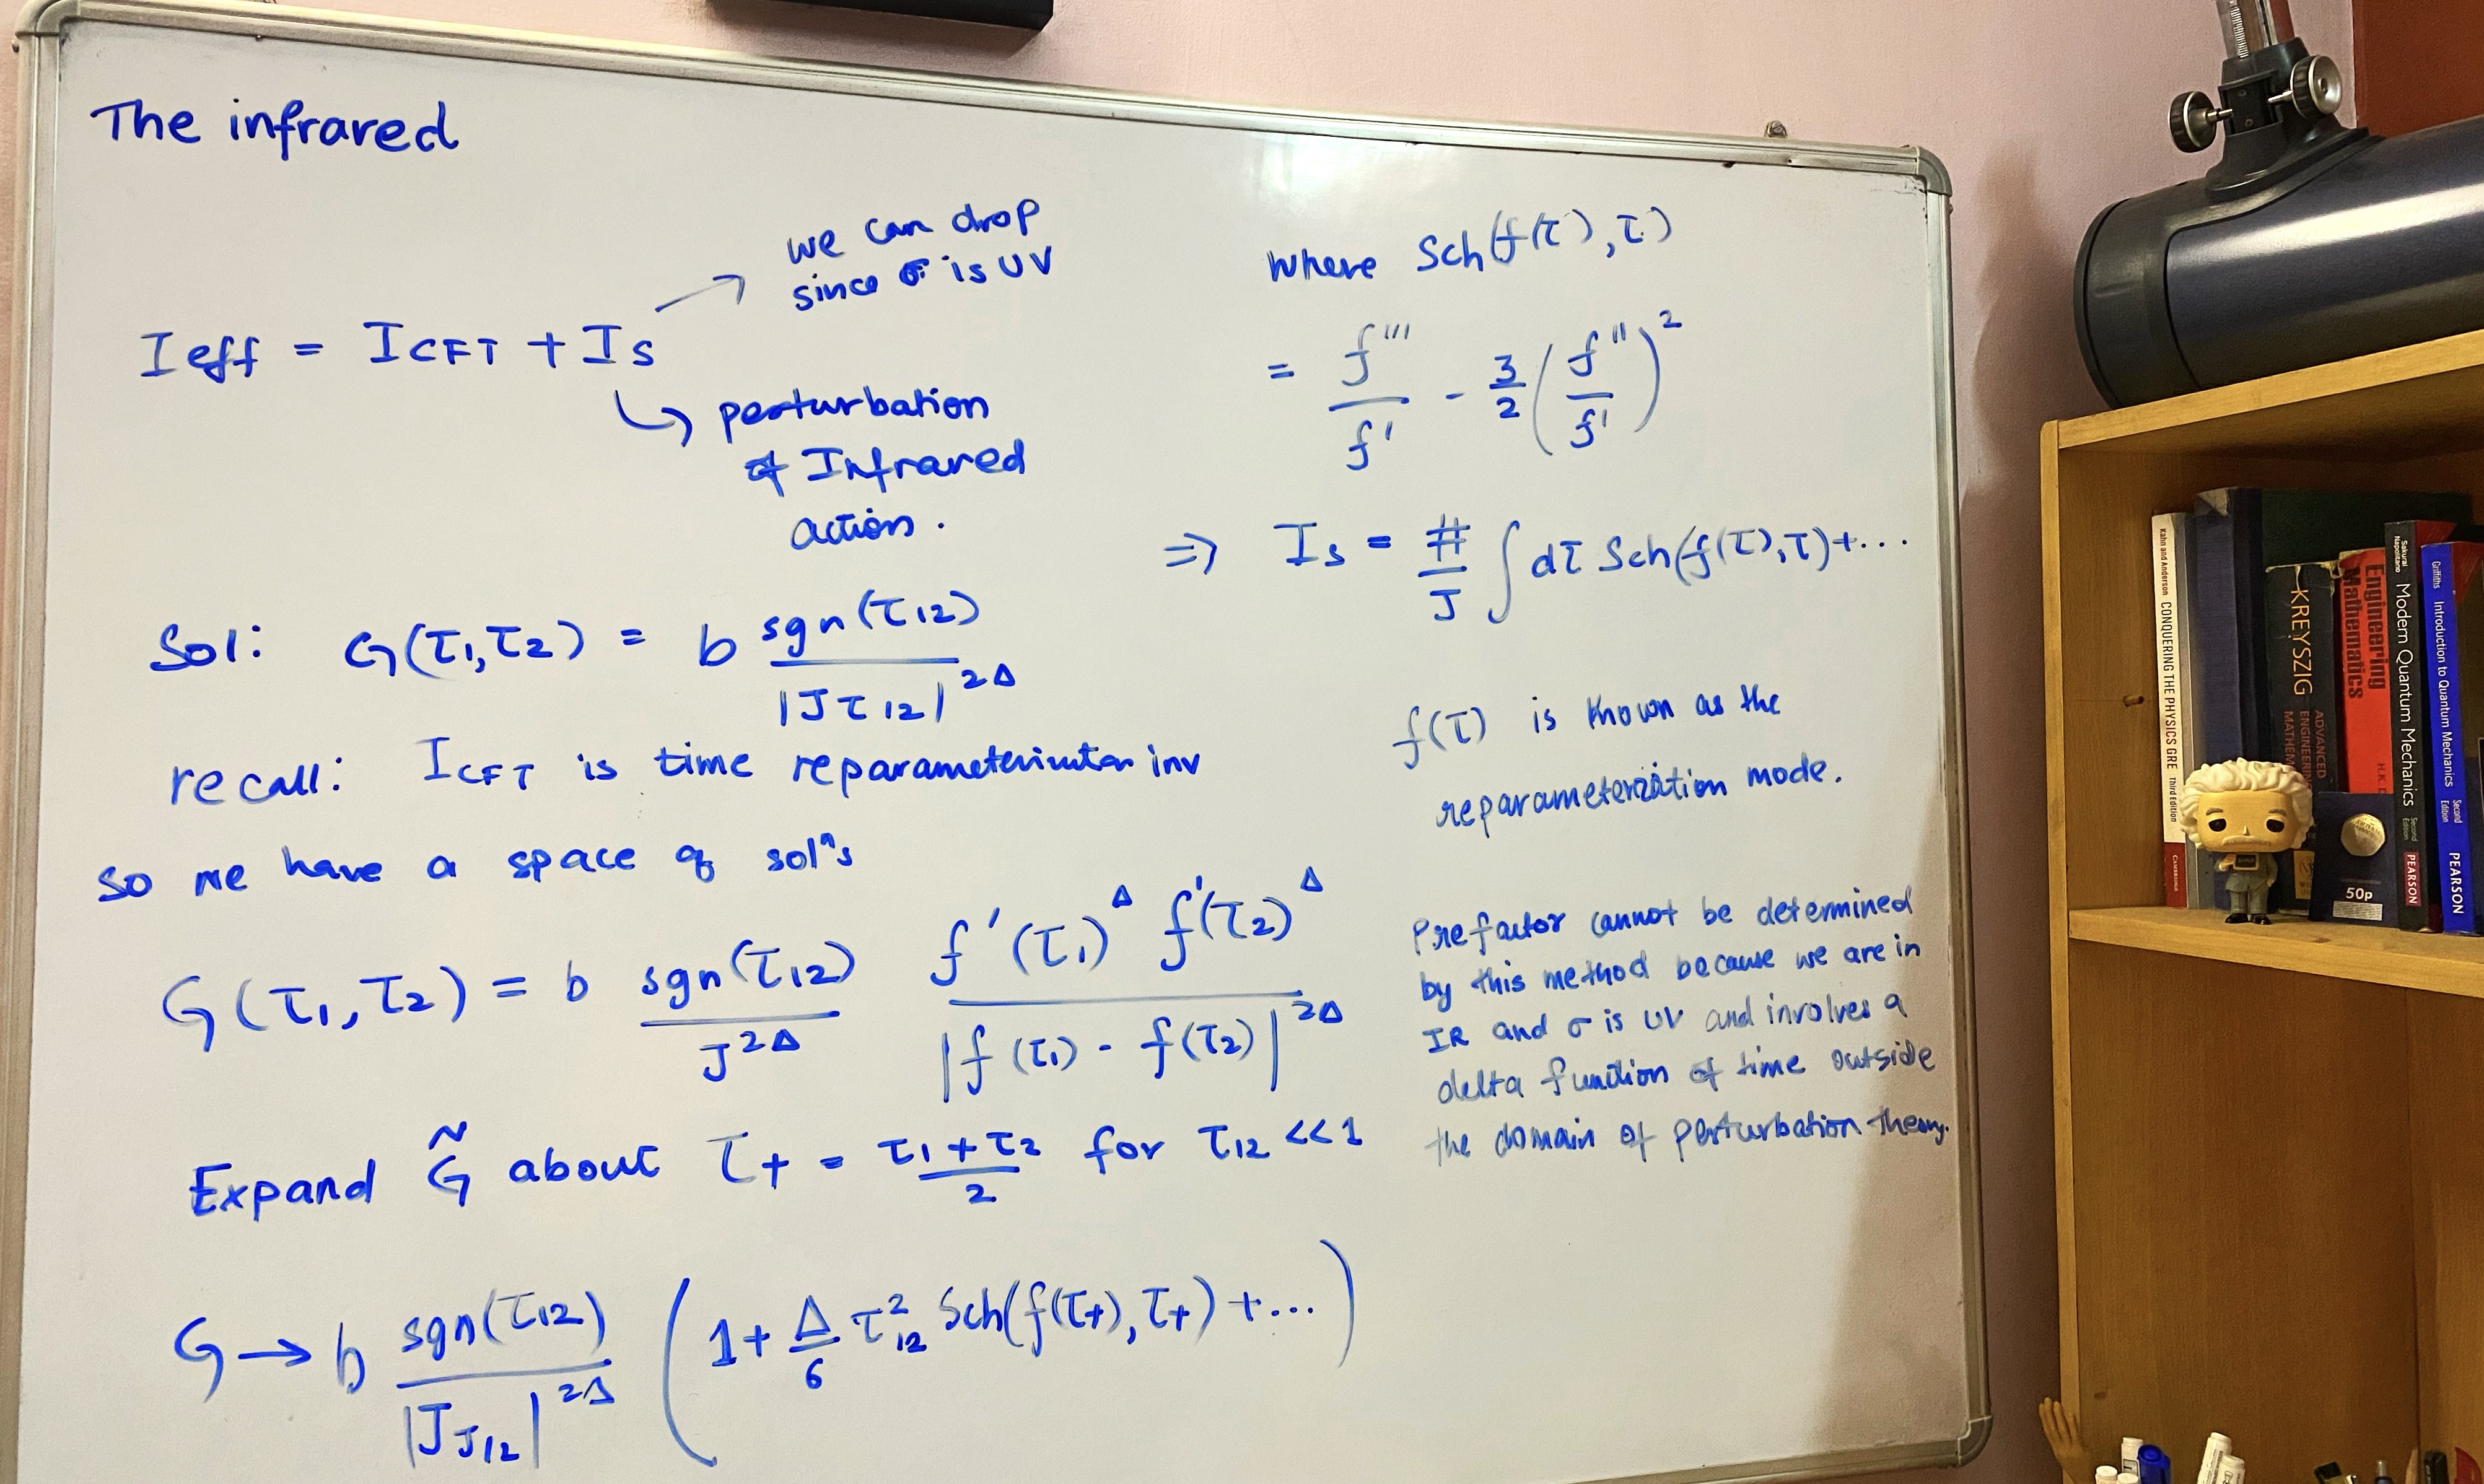 The infrared
we can drop
since σ is UV
I eff = I CFT + I S
perturbation
of Infrared
action.
Sol: G(τ1,τ2) = b sgn(τ12) / |Jτ12|^2Δ
recall: I CFT is time inv
so we have a space of solⁿs
G(τ1,τ2) = b sgn(τ12) / J^2Δ f'(τ1)^Δ f'(τ2)^Δ / |f(τ1) - f(τ2)|^2Δ
Expand G̃ about τ+ = τ1+τ2 / 2 for τ12 <<1
G → b sgn(τ12) / |J J12|^2Δ (1+ Δ/6 τ12^2 Sch(f(τ+), τ+) +...)
where Sch(f(τ),τ)
= f''' / f' - 3/2 (f'' / f')^2
⇒ I S = # / J ∫ dτ Sch(f(τ),τ)+...
f(τ) is known as the
reparameterization mode.
Prefactor cannot be determined
by this method because we are in
IR and σ is UV and involves a
delta function of time outside
the domain of perturbation theory.
Kahn and Anderson CONQUERING THE PHYSICS GRE Third Edition
CAMBRIDGE
KREYSZIG
ADVANCED
ENGINEERING
Engineering
Mathematics
H.K.
Sakurai
Napolitano
Modern Quantum Mechanics
Second
Edition
PEARSON
Griffiths Introduction to Quantum Mechanics
Second
Edition
PEARSON
50p